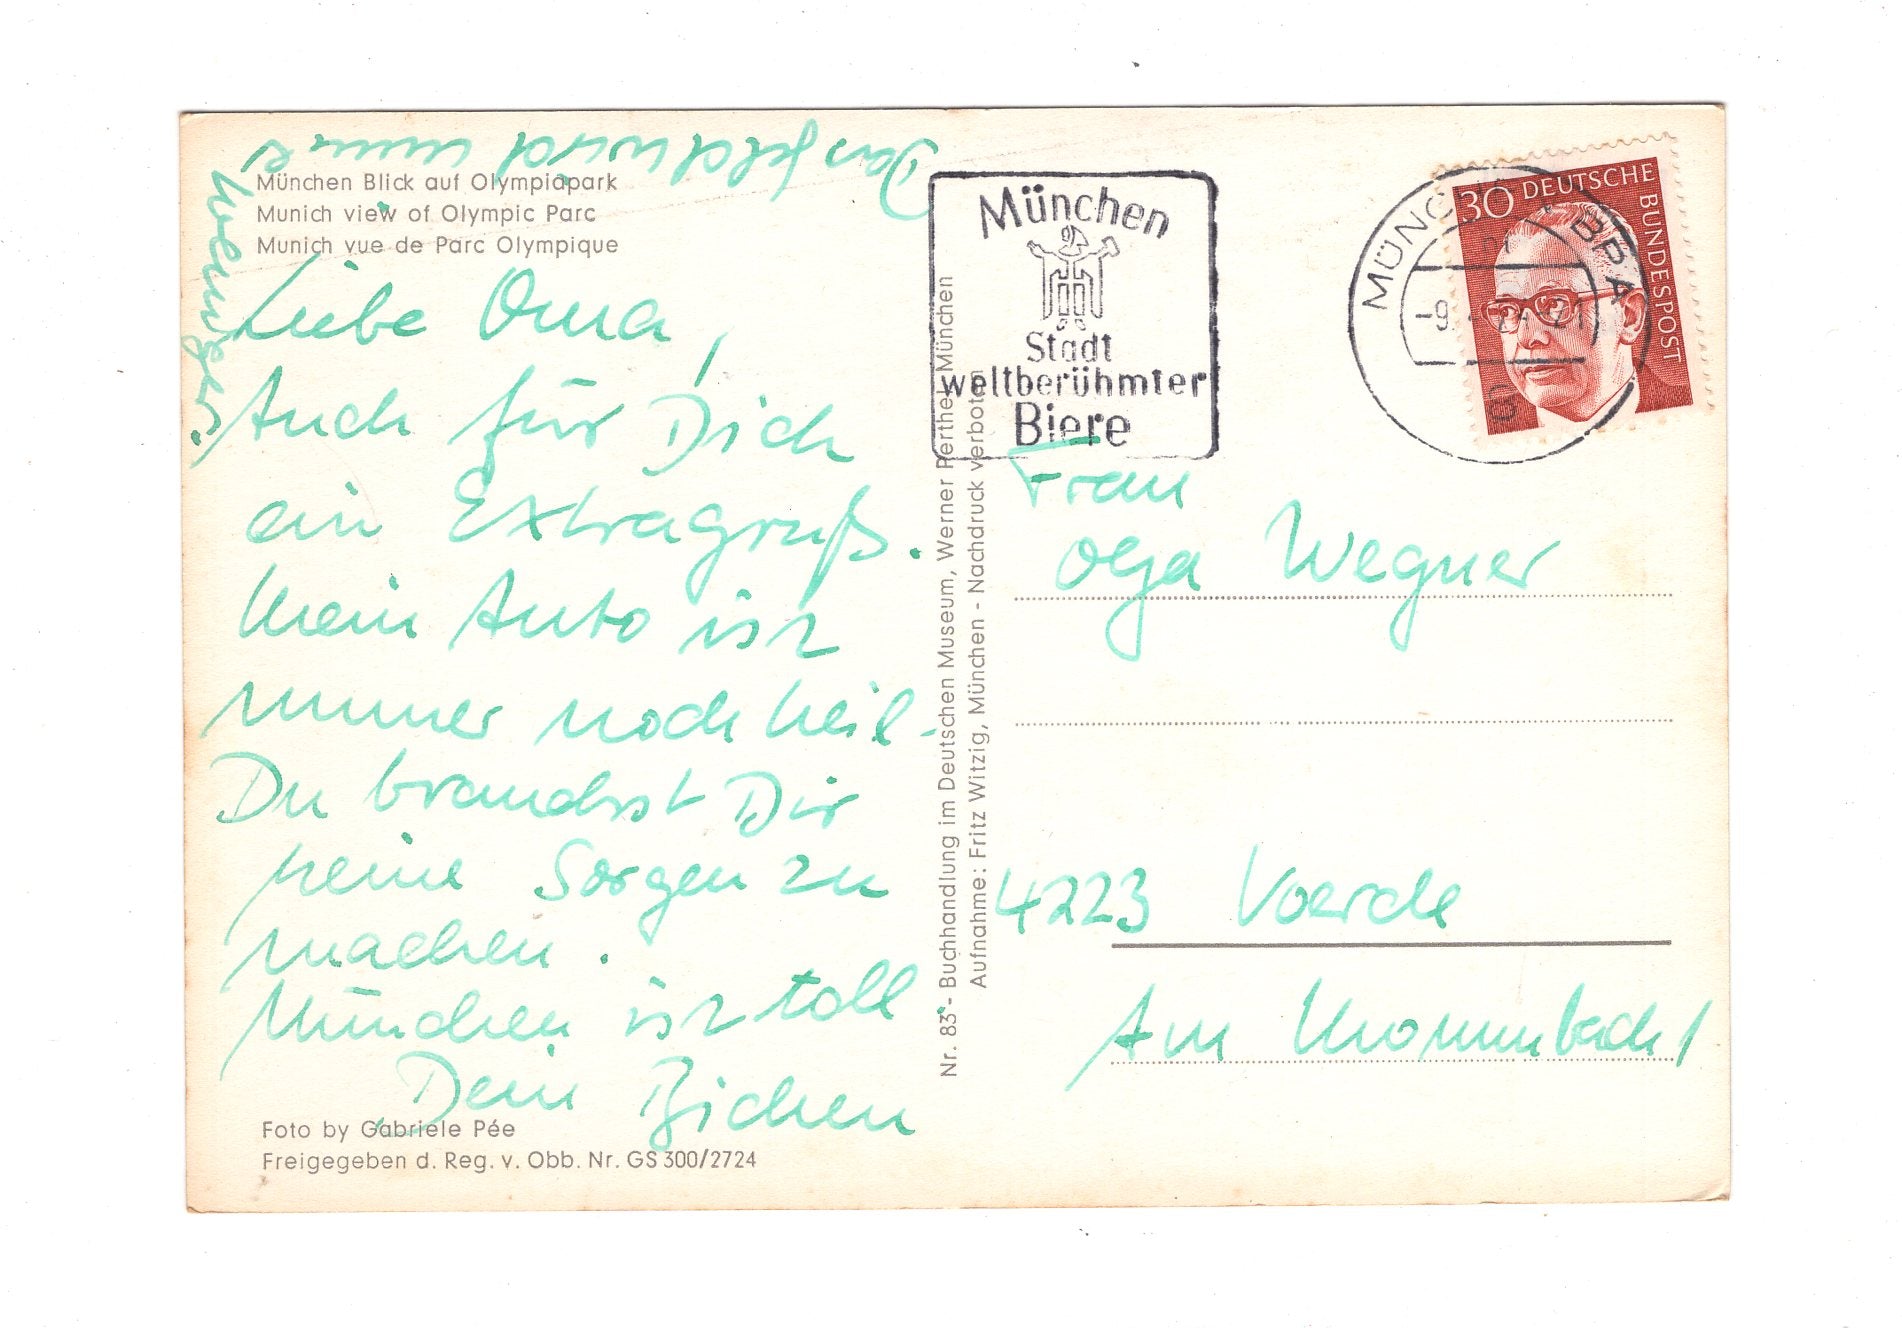 München Blick auf Olympiapark
Munich view of Olympic Parc
Munich vue de Parc Olympique
Liebe Oma,
Auch für Dich
ein Extragruß.
Mein Auto ist
immer noch heil.
Du brauchst Dir
keine Sorgen zu
machen.
München ist toll
Dein
Das Geld wird immer
weniger.
Foto by Gabriele Pée
Freigegeben d. Reg. v. Obb. Nr. GS 300/2724
Nr. 83 - Buchhandlung im Deutschen Museum, Werner Perthel, München
Aufnahme: Fritz Witzig, München - Nachdruck verboten
München
Stadt
weltberühmter
Biere
MÜNCHEN BPA
30 DEUTSCHE
BUNDESPOST
Frau
Olga Wegner
4223 Voerde
Am